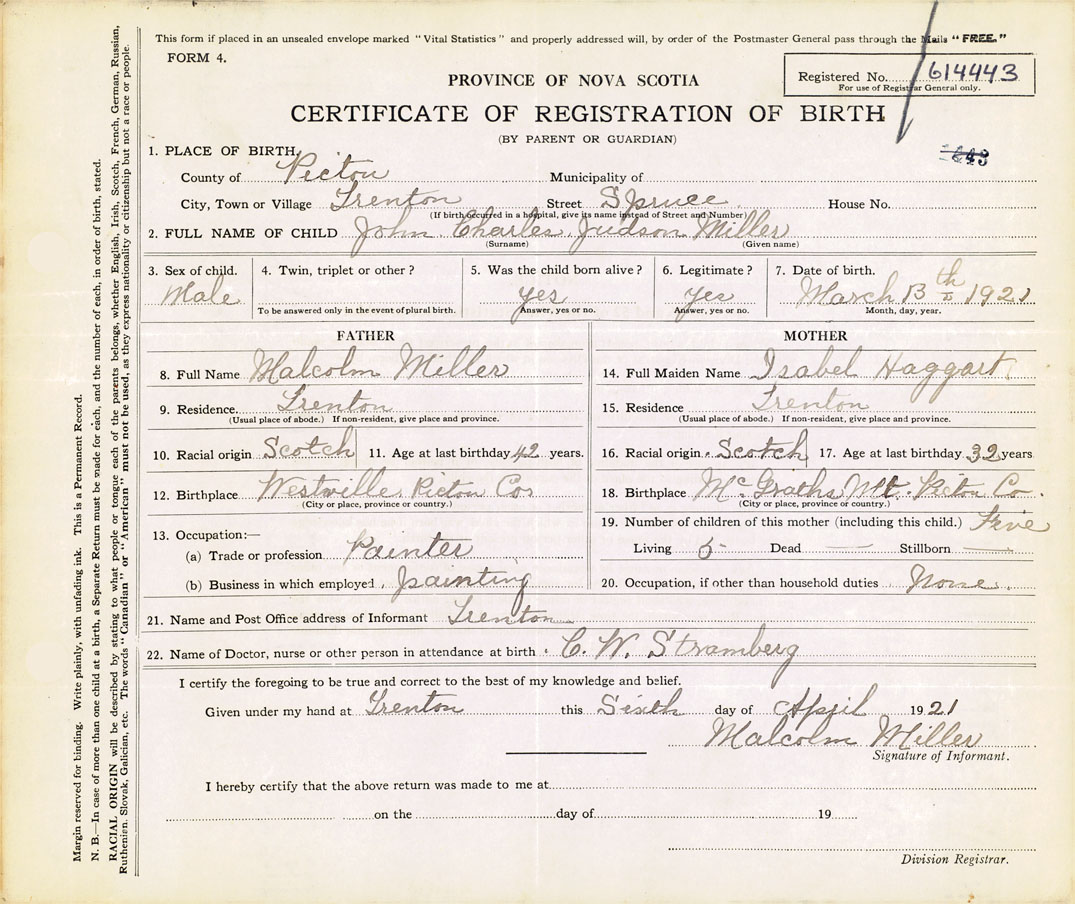 This form if placed in an unsealed envelope marked "Vital Statistics" and properly addressed will, by order of the Postmaster General pass through the Mails "FREE."
FORM 4.
Registered No. 614443
For use of Registrar General only.
PROVINCE OF NOVA SCOTIA
CERTIFICATE OF REGISTRATION OF BIRTH
(BY PARENT OR GUARDIAN)
1. PLACE OF BIRTH,
County of Picton Municipality of
City, Town or Village Trenton Street Spruce House No.
(If birth occurred in a hospital, give its name instead of Street and Number)
2. FULL NAME OF CHILD John Charles Judson Miller
(Surname) (Given name)
3. Sex of child. 4. Twin, triplet or other? 5. Was the child born alive? 6. Legitimate? 7. Date of birth.
Male yes yes March 13th 1921
To be answered only in the event of plural birth. Answer, yes or no. Answer, yes or no. Month, day, year.
FATHER MOTHER
8. Full Name Malcolm Miller 14. Full Maiden Name Isabel Haggart
9. Residence. Trenton 15. Residence Trenton
(Usual place of abode.) If non-resident, give place and province. (Usual place of abode.) If non-resident, give place and province.
10. Racial origin Scotch 11. Age at last birthday 42 years. 16. Racial origin Scotch 17. Age at last birthday 32 years
12. Birthplace Westville Picton Co 18. Birthplace McGraths Mt. Picton Co.
(City or place, province or country.) (City or place, province or country.)
13. Occupation:— 19. Number of children of this mother (including this child.) Five
(a) Trade or profession Painter Living 5 Dead — Stillborn —
(b) Business in which employed painting 20. Occupation, if other than household duties None.
21. Name and Post Office address of Informant Trenton
22. Name of Doctor, nurse or other person in attendance at birth C. W. Stramberg
I certify the foregoing to be true and correct to the best of my knowledge and belief.
Given under my hand at Trenton this Sixth day of April 1921
Malcolm Miller
Signature of Informant.
I hereby certify that the above return was made to me at
on the day of 19
Division Registrar.
Margin reserved for binding. Write plainly, with unfading ink. This is a Permanent Record.
N. B.—In case of more than one child at a birth, a Separate Return must be made for each, and the number of each, in order of birth, stated.
RACIAL ORIGIN will be described by stating to what people or tongue each of the parents belongs, whether English, Irish, Scotch, French, German, Russian,
Ruthenian, Slovak, Galician, etc. The words "Canadian" or "American" must not be used, as they express nationality or citizenship but not a race or people.